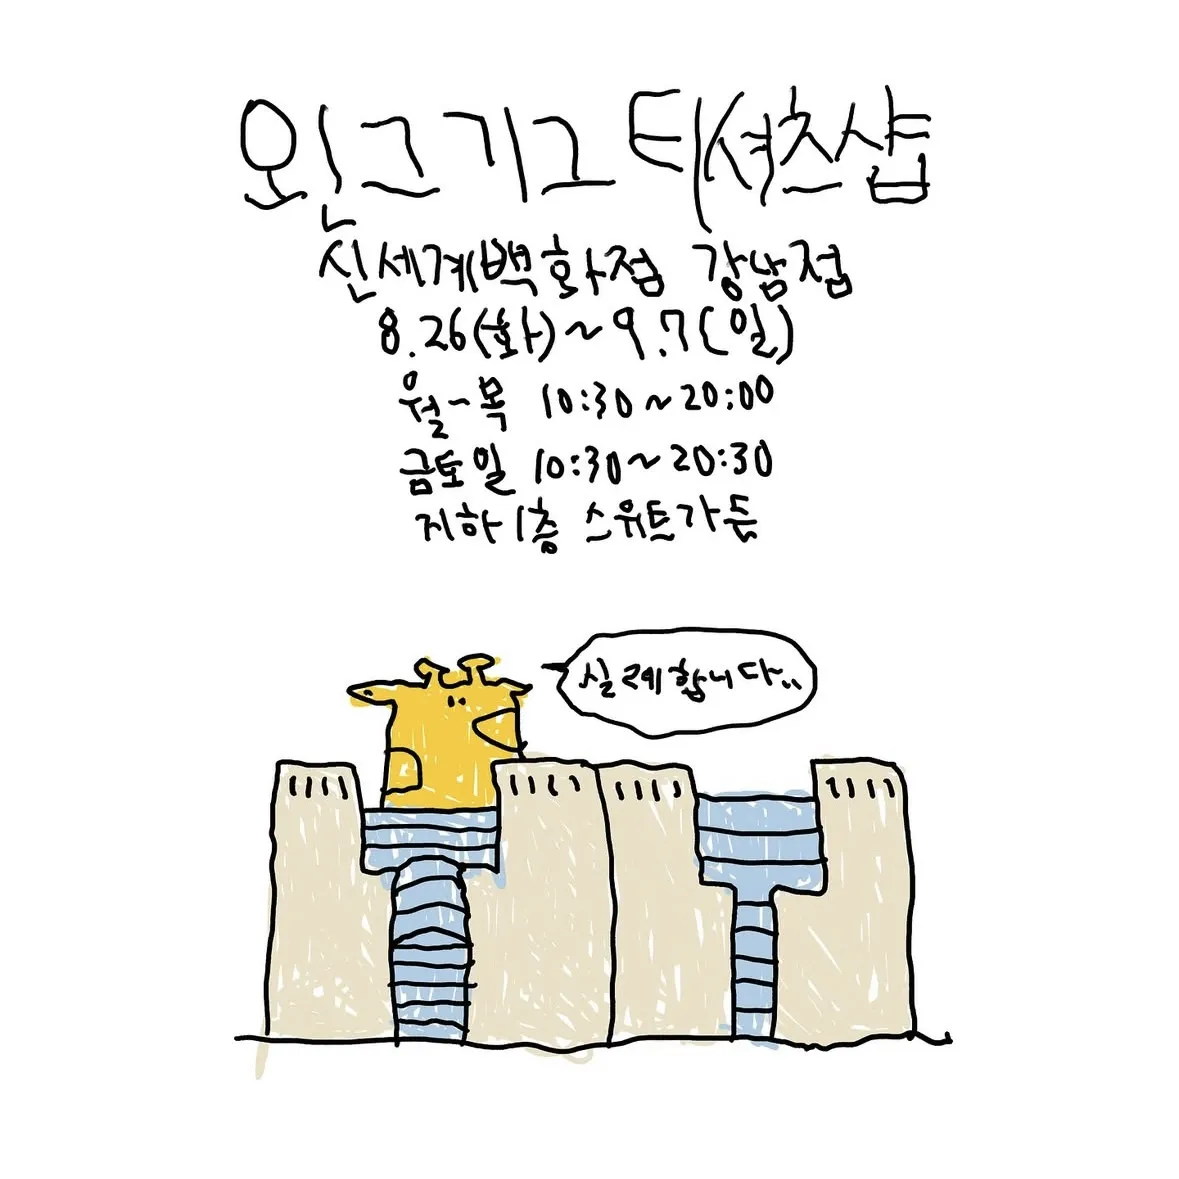 왼그기그 티셔츠샵
신세계백화점 강남점
8.26(화)~9.7(일)
월~목 10:30~20:00
금토일 10:30~20:30
지하1층 스위트가든
실례합니다..